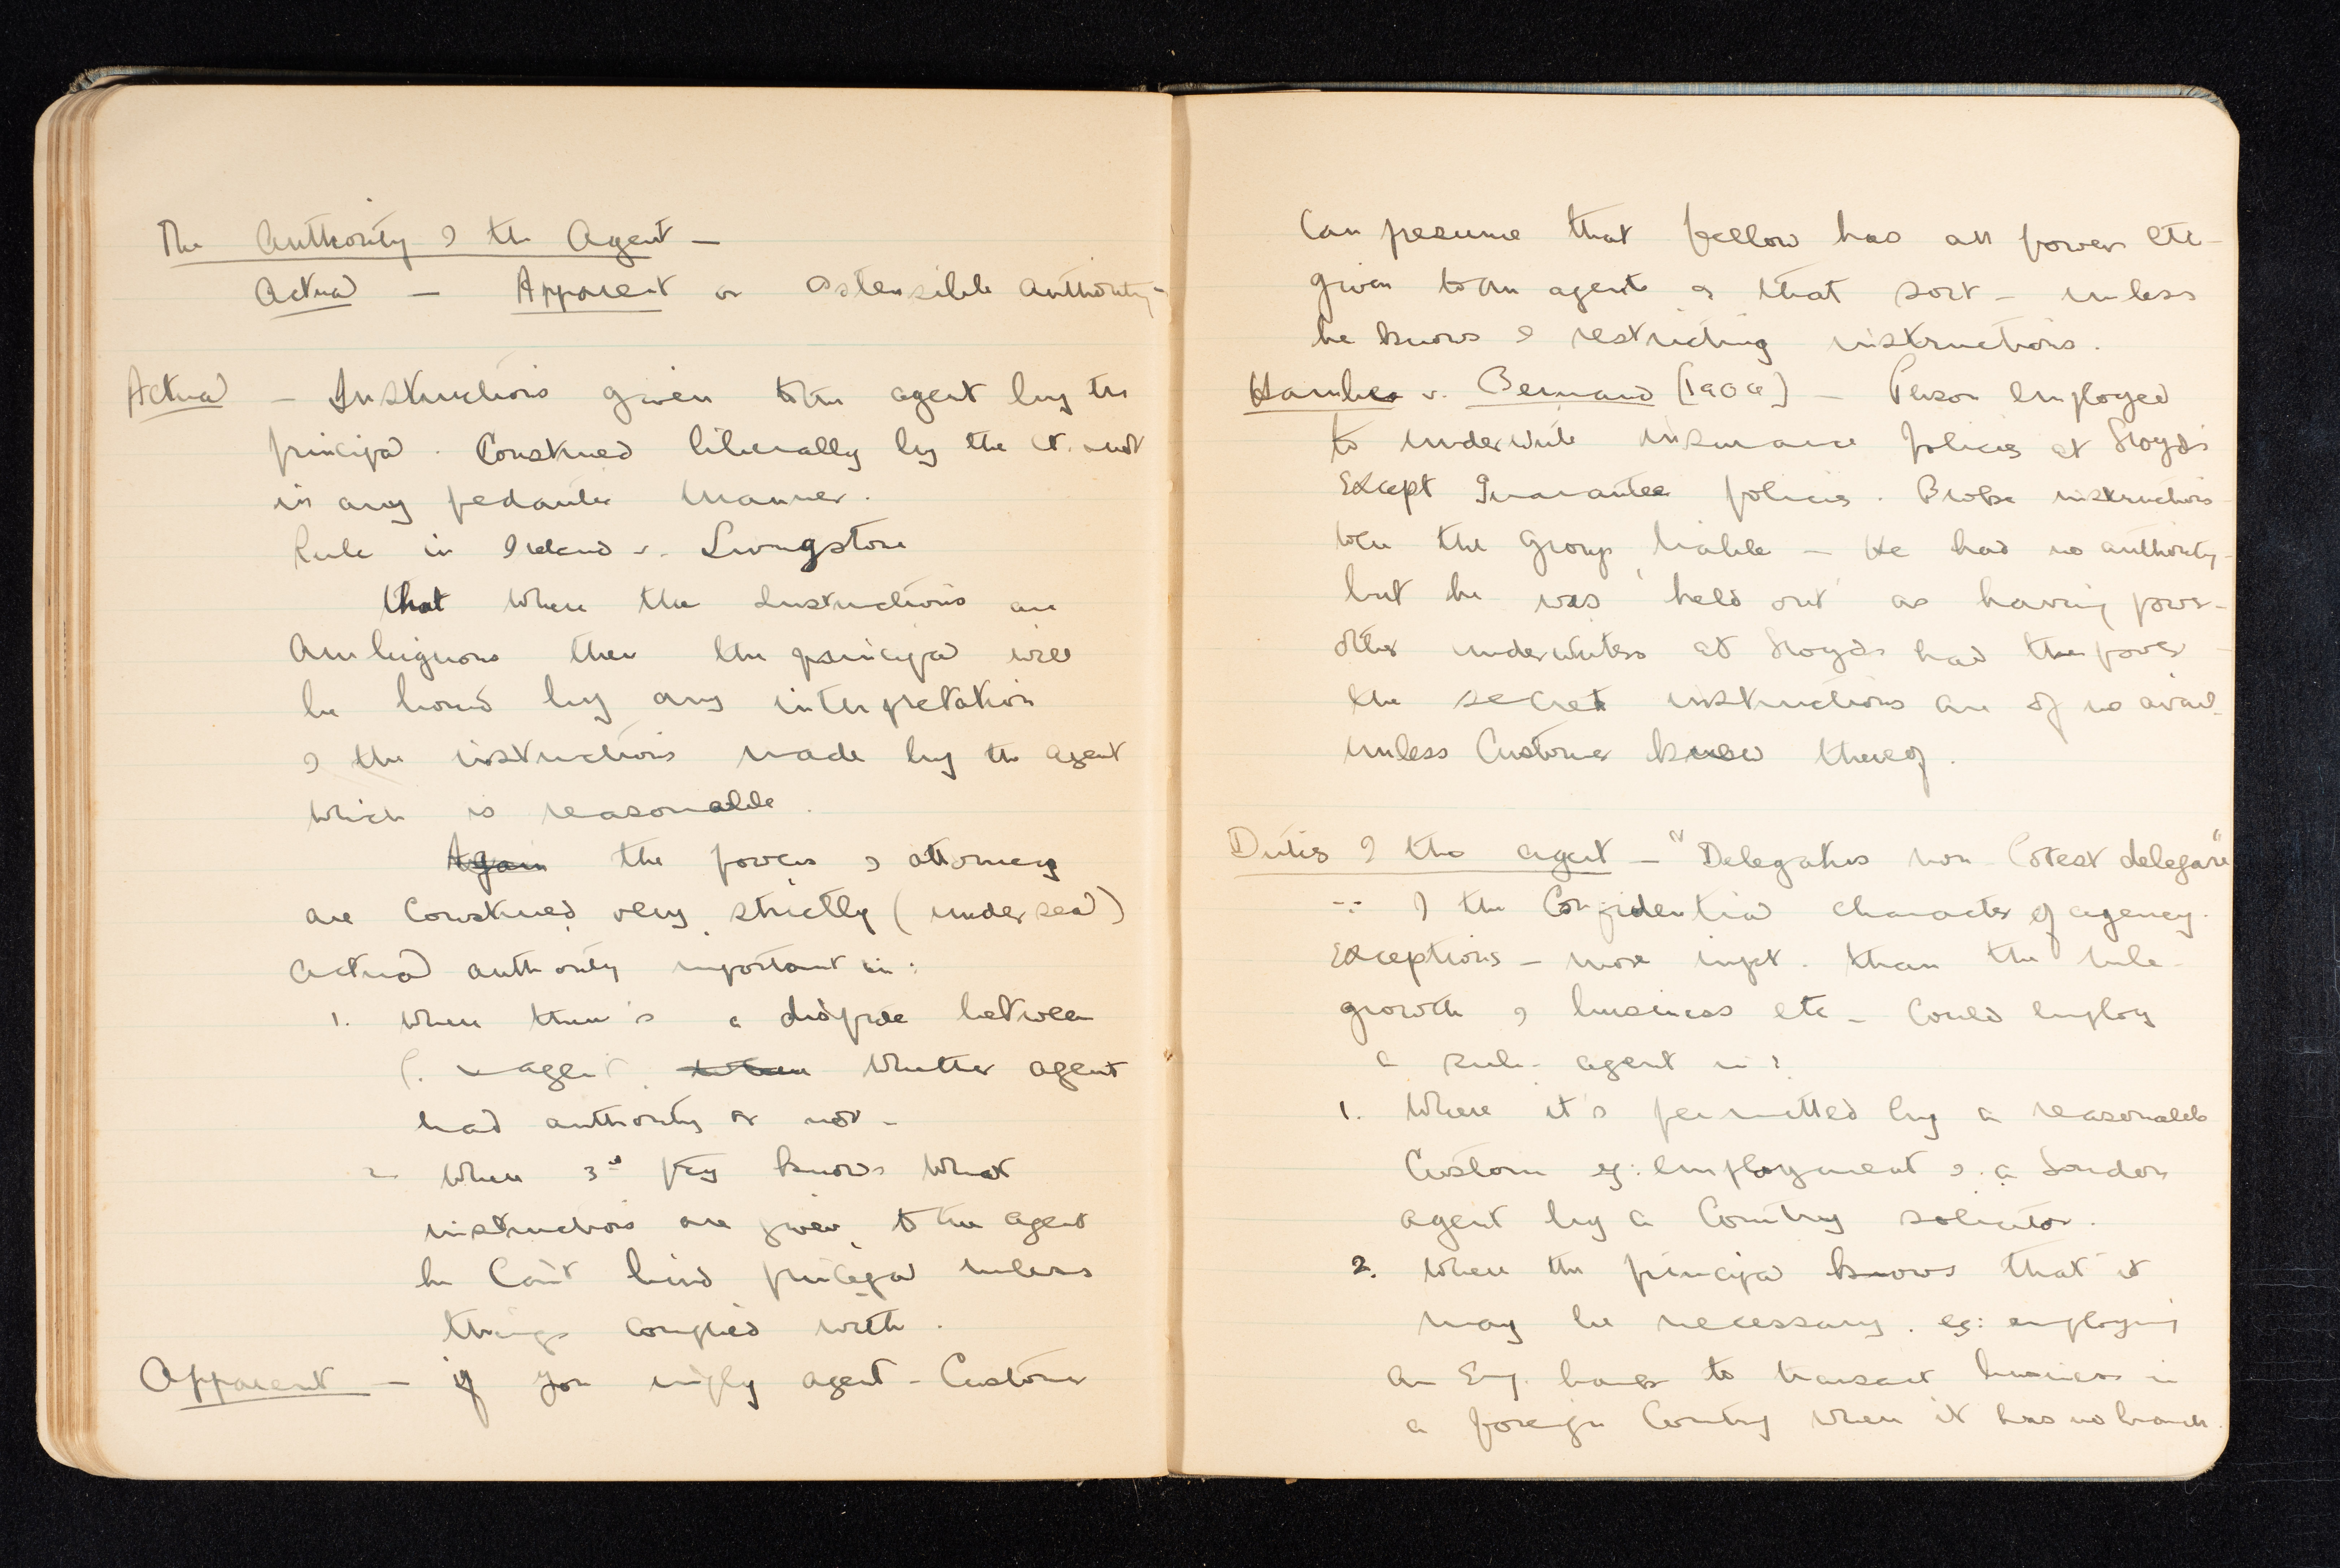 The Authority of the Agent —
Actual — Apparent or ostensible authority -
Actual — Instructions given to the agent by the
principal. Construed liberally by the ct. & not
in any pedantic manner.
Rule in Ireland v. Livingston
that where the Instructions are
Ambiguous then the principal will
be bound by any interpretation
of the instructions made by the agent
which is reasonable.
Again the powers of attorney
are construed very strictly (under seal)
Actual authority important in:
1. When there is a dispute between
P. & agent. whether agent
had authority or not -
2 When 3rd pty knows what
instructions are given to the agent
he can't bind principal unless
things complied with.
Apparent — if you imply agent - Customer
Can presume that fellow has all powers etc -
given to an agent of that sort - unless
he knows of restricting instructions.
Hambro v. Burnand [1904] — Person employed
to underwrite insurance policies at Lloyds
Except Guarantee policies. Broke instructions
were the Group liable — He had no authority -
but he was 'held out' as having power -
other underwriters at Lloyds had the power -
the secret instructions are of no avail -
unless Customer knew thereof.
Duties of the agent — "Delegatus non potest delegare"
∵ of the Confidential character of agency.
Exceptions - more impt. than the rule -
growth of business etc - Could employ
a sub-agent in:
1. Where it's permitted by a reasonable
Custom eg: employment of a London
agent by a Country solicitor.
2. Where the principal knows that it
may be necessary. eg: employing
an Eng. bank to transact business in
a foreign Country when it has no branch.